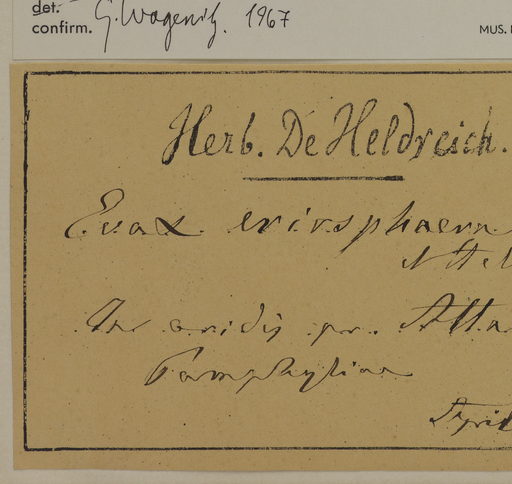 det.
confirm. G. Wagenitz. 1967
MUS.
Herb. De Heldreich.
Evax eriosphaera
In aridis pr. Atta
Pamphyliae